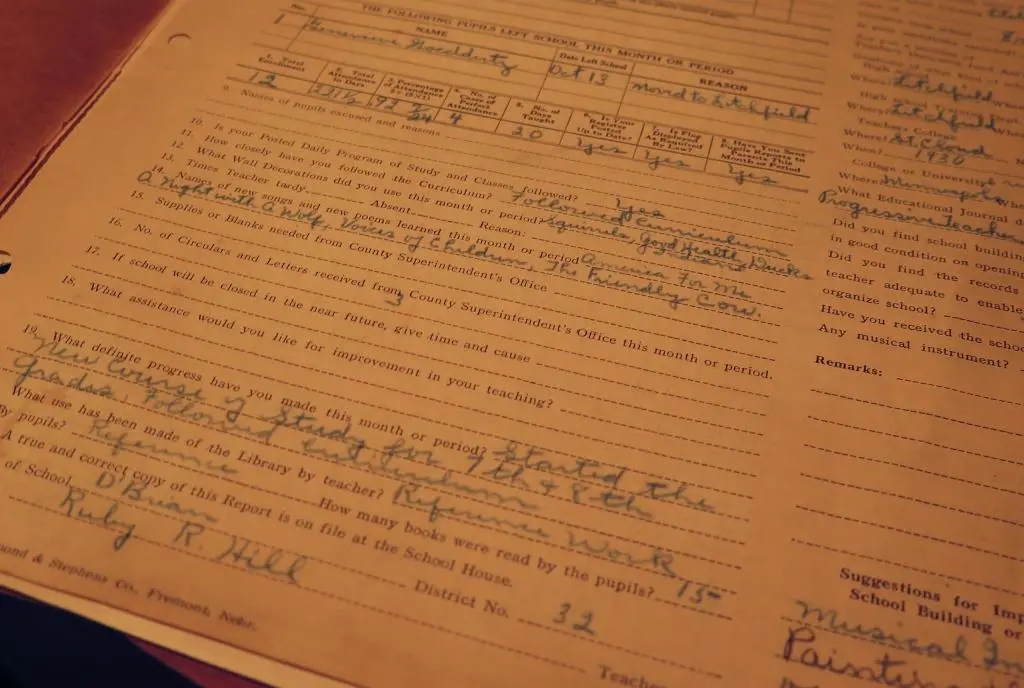 THE FOLLOWING PUPILS LEFT SCHOOL THIS MONTH OR PERIOD
No. NAME Date Left School REASON
1 Genevieve Oct 13 Moved to Litchfield
1. Total Enrollment 2. Total Attendance in Days 3. Percentage of Attendance 4. No. of Cases of Perfect Attendance 5. No. of Days Taught 6. Is Your Register Posted Up to Date? 7. Is Flag Displayed As Required By Law? 8. Have You Sent Pupils' Reports to Parents This Month or Period
12 221½ 4 20 Yes Yes Yes
9. Names of pupils excused and reasons
10. Is your Posted Daily Program of Study and Classes followed? Yes
11. How closely have you followed the Curriculum? Followed Curriculum
12. What Wall Decorations did you use this month or period? Squirrels, Good Health, Ducks
13. Times Teacher tardy Absent Reason:
14. Names of new songs and new poems learned this month or period America For Me
A Night with A Wolf, Voices of Children, The Friendly Cow.
15. Supplies or Blanks needed from County Superintendent's Office
16. No. of Circulars and Letters received from County Superintendent's Office this month or period.
3
17. If school will be closed in the near future, give time and cause
18. What assistance would you like for improvement in your teaching?
19. What definite progress have you made this month or period? Started the
New Course of Study for 7th & 8th
Grades. Followed Curriculum
What use has been made of the Library by teacher? Reference Work
By pupils? Reference How many books were read by the pupils? 15
A true and correct copy of this Report is on file at the School House.
of School O'Brian District No. 32
Ruby R. Hill Teacher
& Stephens Co., Fremont, Nebr.
High
Where Litchfield
High
Where Litchfield
Teachers College
Where? St. Cloud
When? 1930
College or University
Where? Minneapolis
What Educational Journal
Progressive Teacher
Did you find school building
in good condition on opening
Did you find the records
teacher adequate to enable
organize school?
Have you received the
Any musical instrument?
Remarks:
Suggestions for
School Building or
Musical